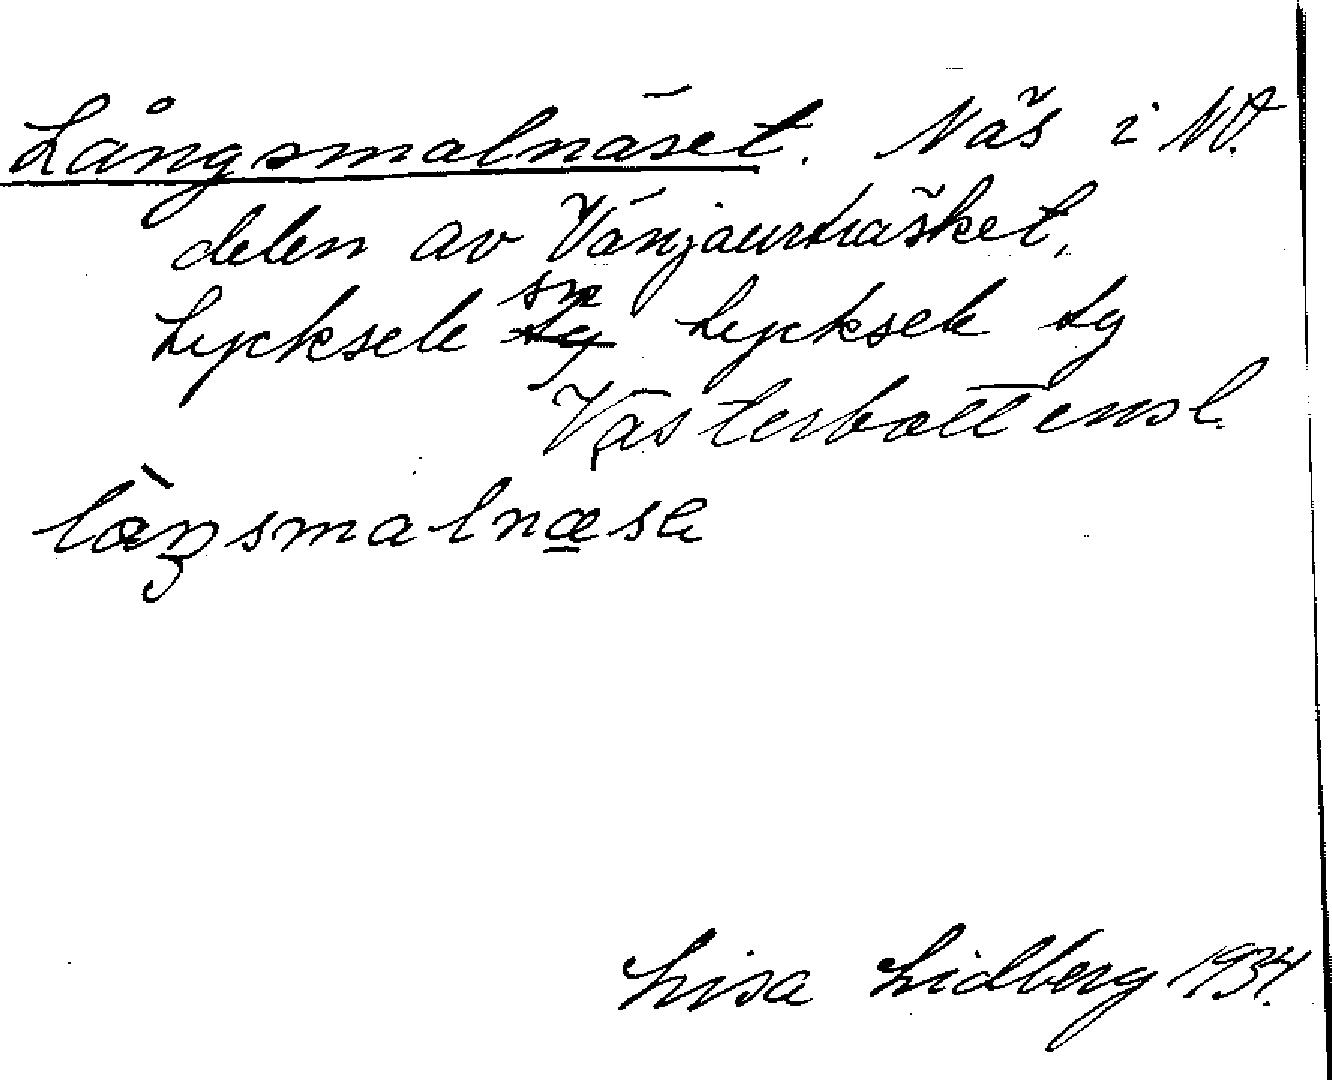 Långsmalnäset. Näs i NV.
delen av Vänjaurträsket,
Lycksele sn Lycksele Lg
Västerbottensl.
Lisa Lidberg 1934.